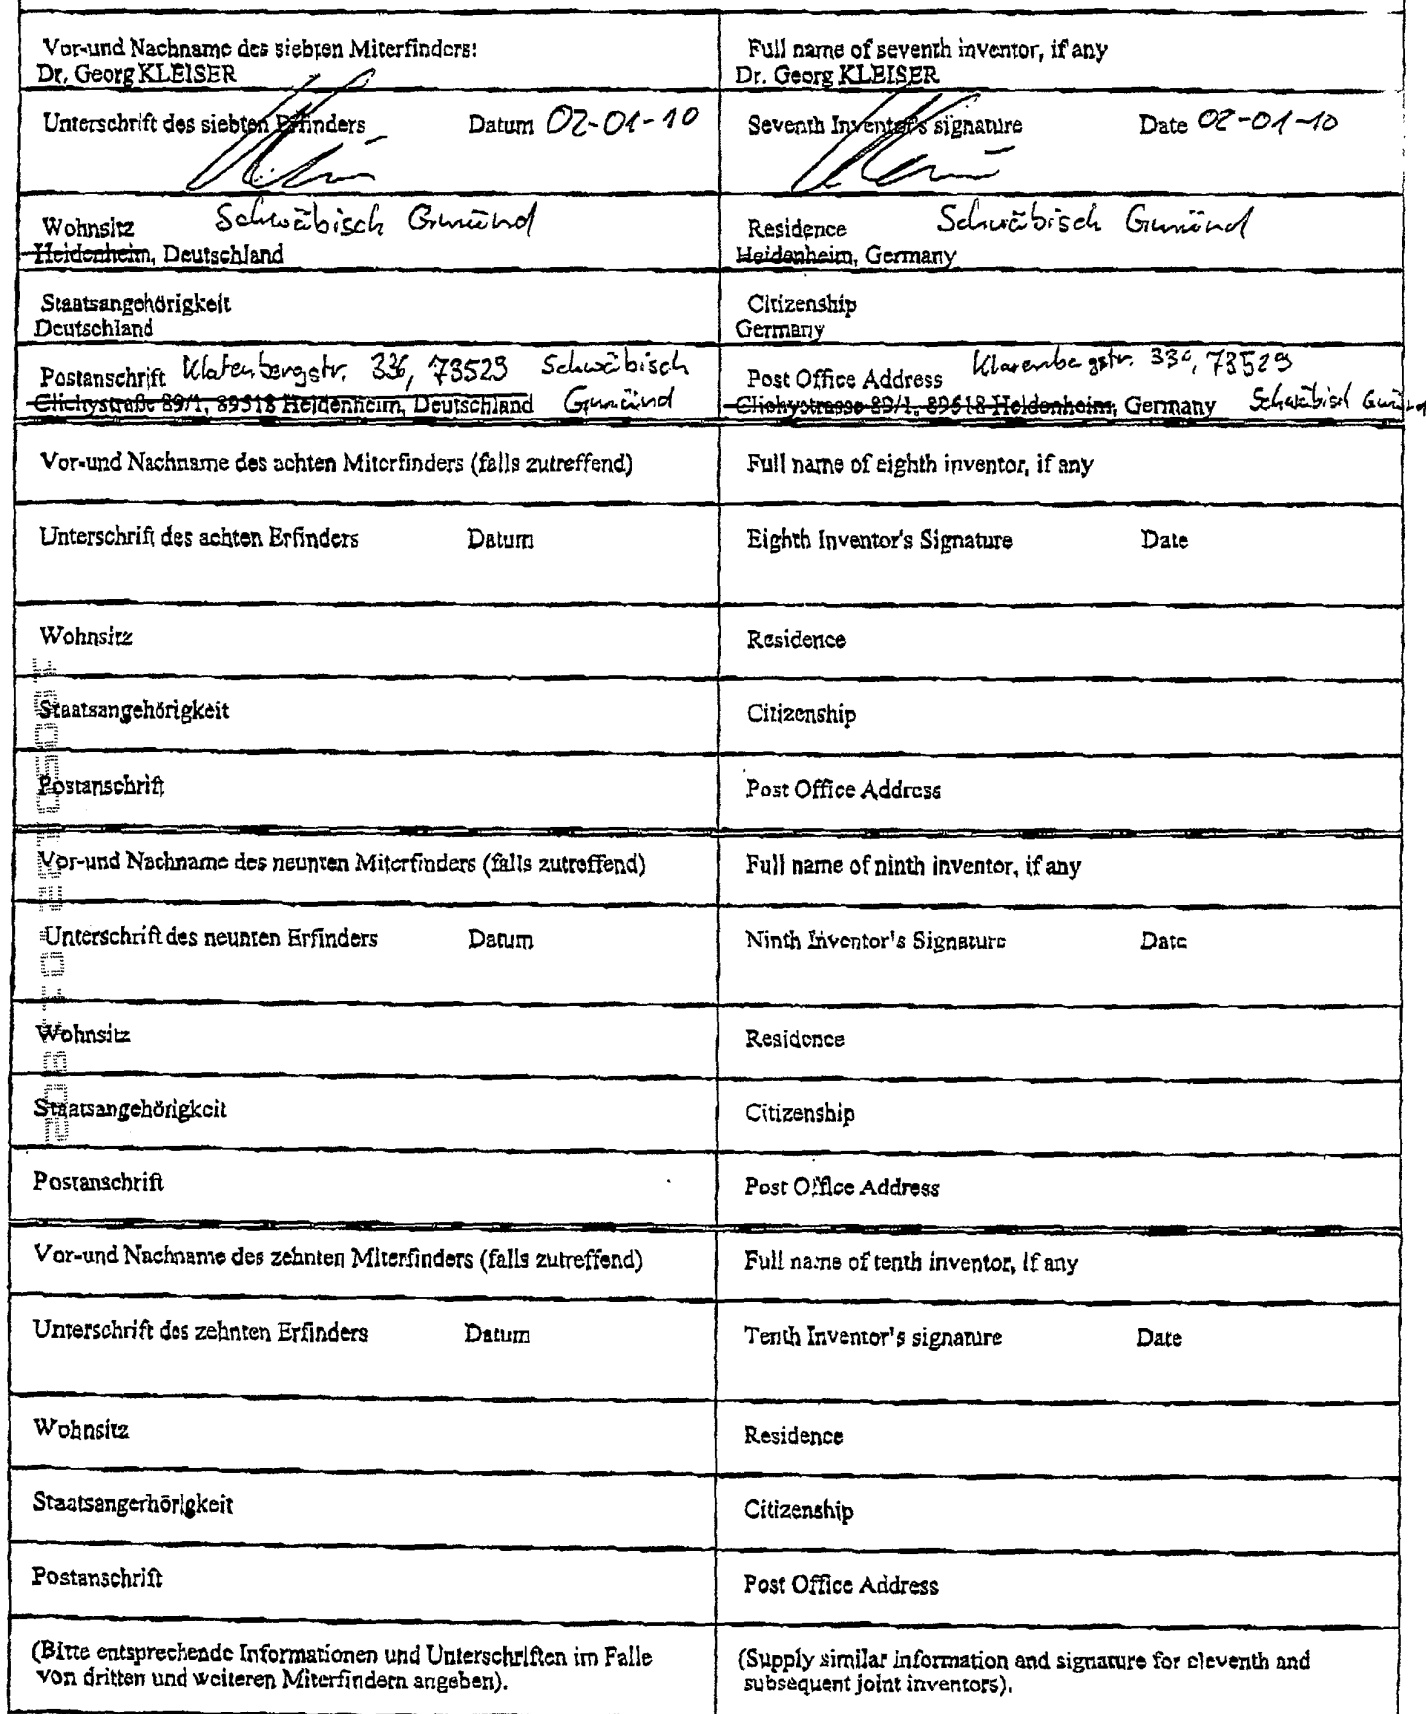 Vor-und Nachname des siebten Miterfinders:
Dr. Georg KLEISER
Full name of seventh inventor, if any
Dr. Georg KLEISER
Unterschrift des siebten Erfinders Datum 02-01-10
Seventh Inventor's signature Date 02-01-10
Schwäbisch Gmünd
Wohnsitz
Heidenheim, Deutschland
Schwäbisch Gmünd
Residence
Heidenheim, Germany
Staatsangehörigkeit
Deutschland
Citizenship
Germany
Postanschrift 336, 73529 Schwäbisch
Clichystraße 89/1, 89518 Heidenheim, Deutschland Gmünd
Post Office Address 73529
Clichystrasse 89/1, 89518 Heidenheim, Germany Schwäbisch Gmünd
Vor-und Nachname des achten Miterfinders (falls zutreffend)
Full name of eighth inventor, if any
Unterschrift des achten Erfinders Datum
Eighth Inventor's Signature Date
Wohnsitz
Residence
Staatsangehörigkeit
Citizenship
Postanschrift
Post Office Address
Vor-und Nachname des neunten Miterfinders (falls zutreffend)
Full name of ninth inventor, if any
Unterschrift des neunten Erfinders Datum
Ninth Inventor's Signature Date
Wohnsitz
Residence
Staatsangehörigkeit
Citizenship
Postanschrift
Post Office Address
Vor-und Nachname des zehnten Miterfinders (falls zutreffend)
Full name of tenth inventor, if any
Unterschrift des zehnten Erfinders Datum
Tenth Inventor's signature Date
Wohnsitz
Residence
Staatsangerhörigkeit
Citizenship
Postanschrift
Post Office Address
(Bitte entsprechende Informationen und Unterschriften im Falle
von dritten und weiteren Miterfindern angeben).
(Supply similar information and signature for eleventh and
subsequent joint inventors).